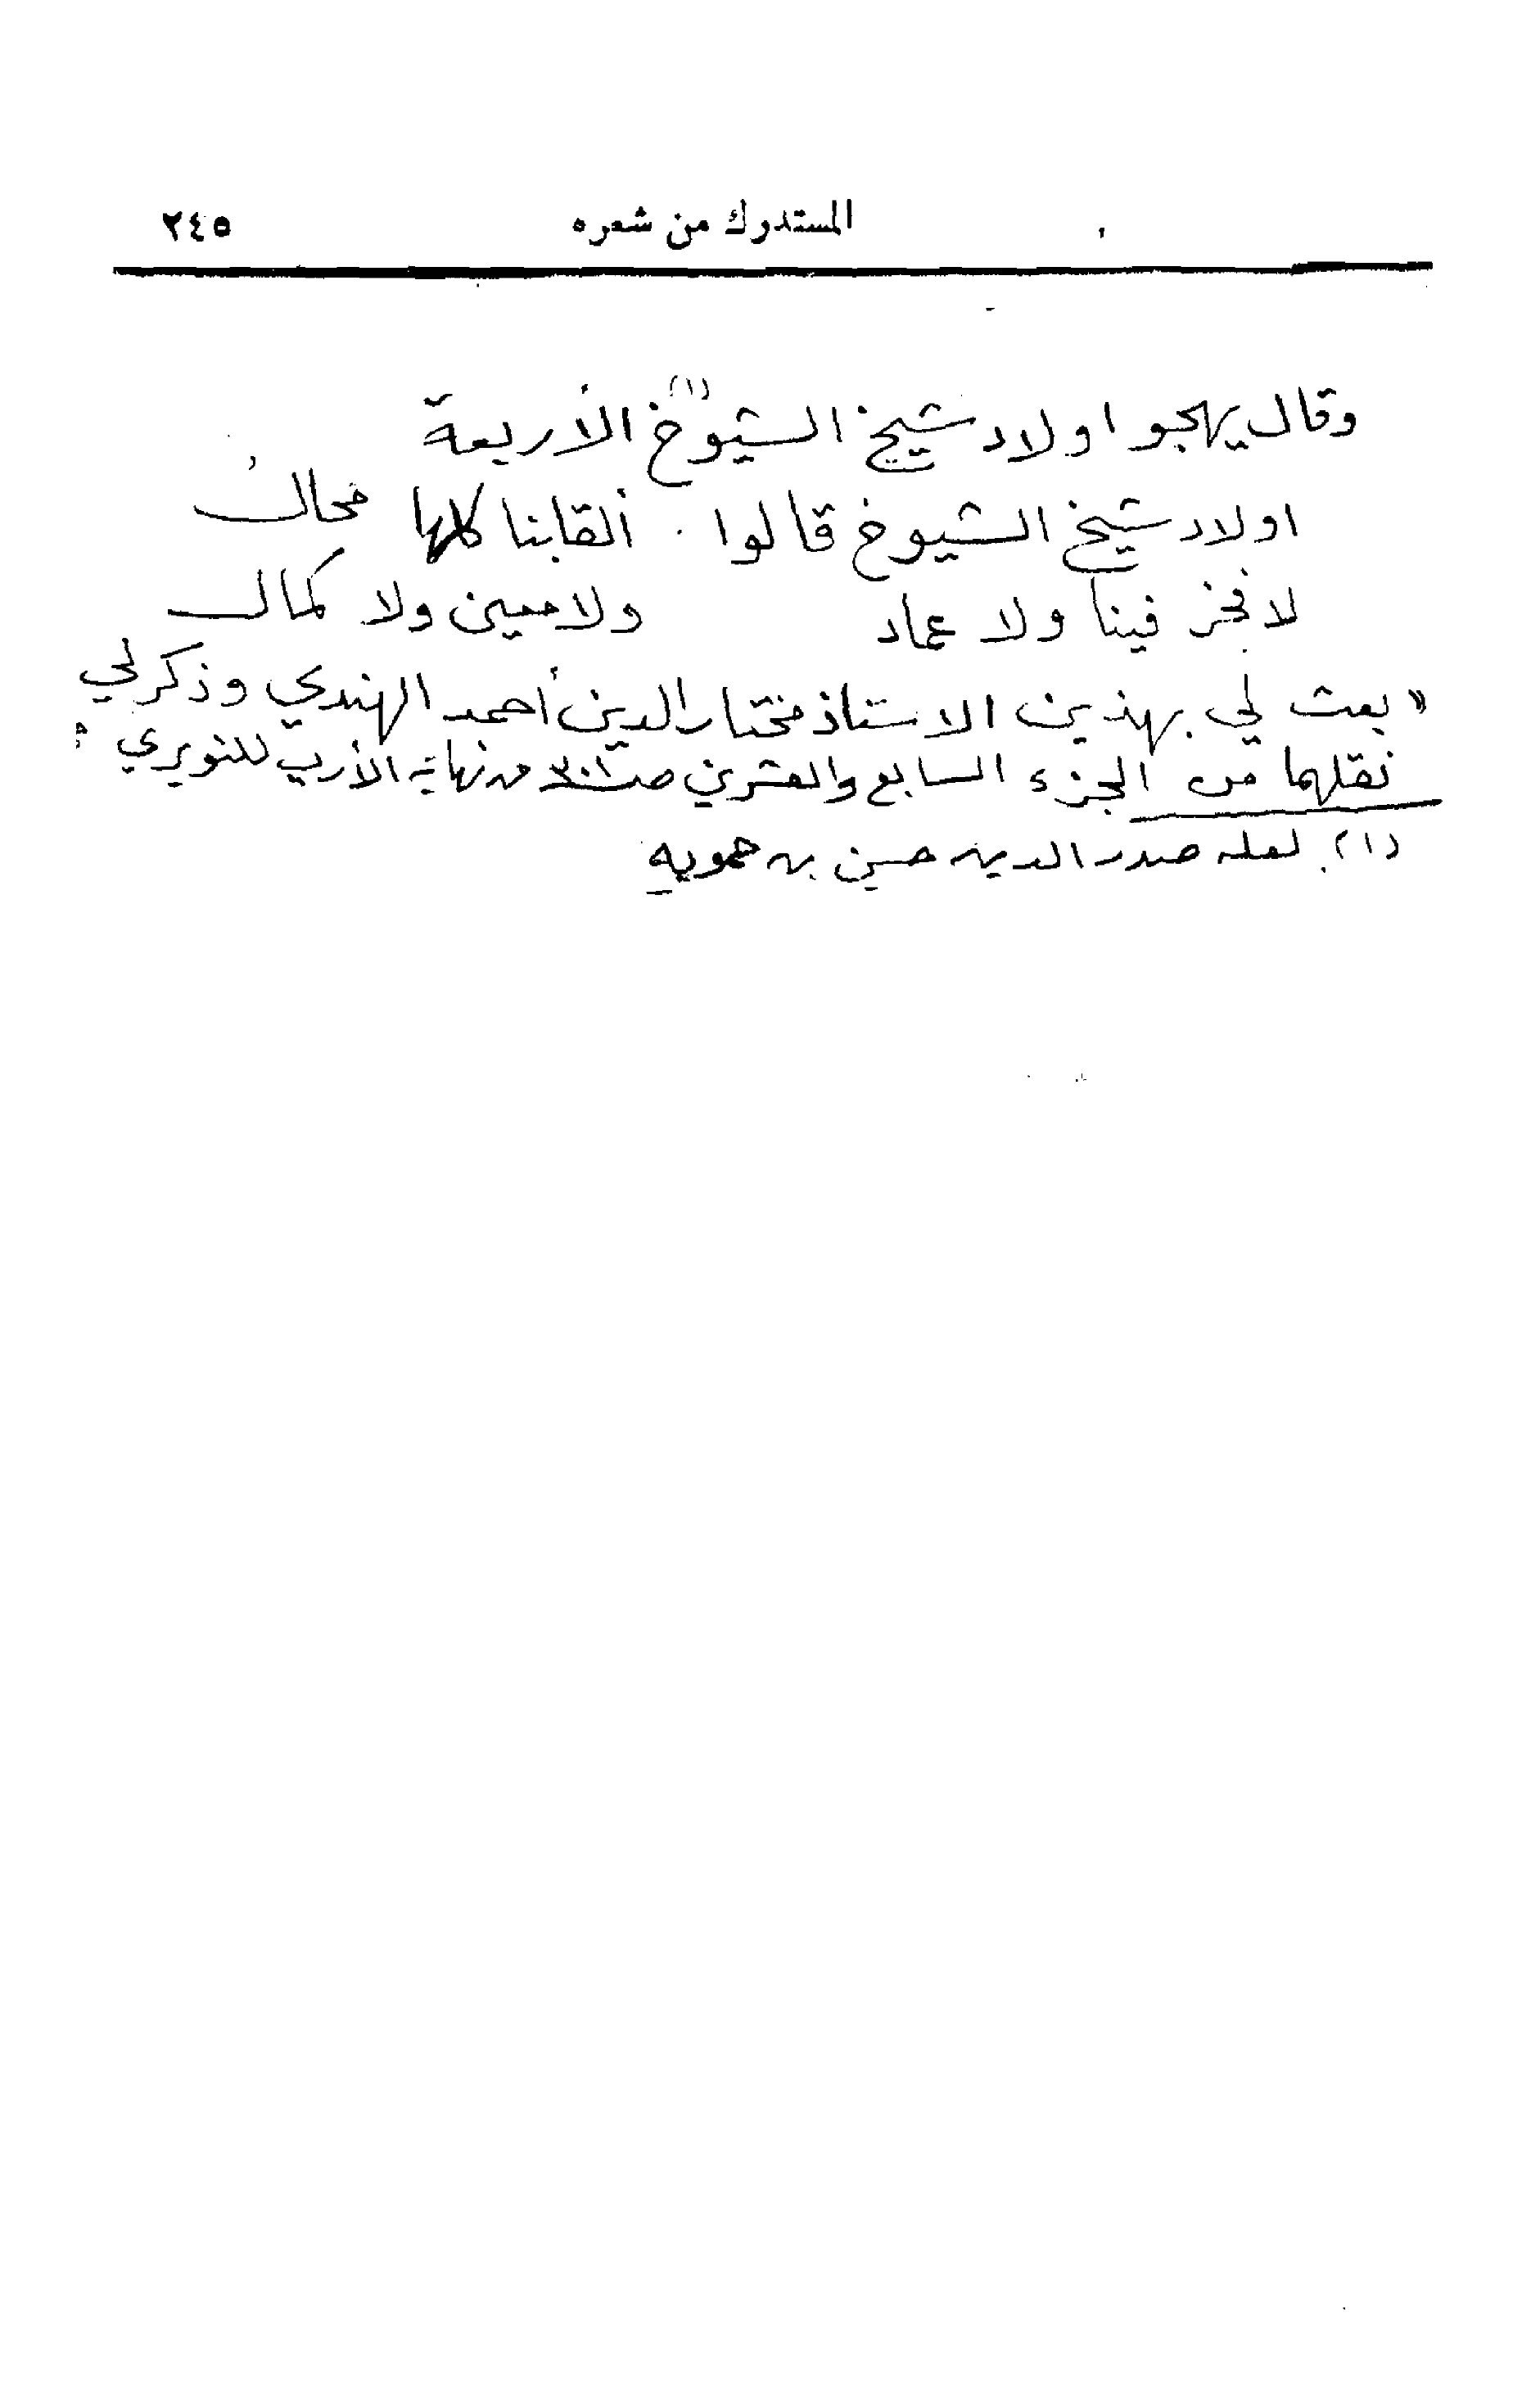 المستدرك من شعره ٢٤٥
وقال يهجو اولاد شيخ الشيوخ (١) الأربعة
اولاد شيخ الشيوخ قالوا ألقابنا كلها محالُ
لا فخر فينا ولا عماد ولا معين ولا كمال
« بعث لي بهذين الاستاذ مختار الدين أحمد الهندي وذكر لي
نقلهما من الجزء السابع والعشرين من نهاية الأرب للنويري »
(١) لعله صدر الدين حسن بن حمويه